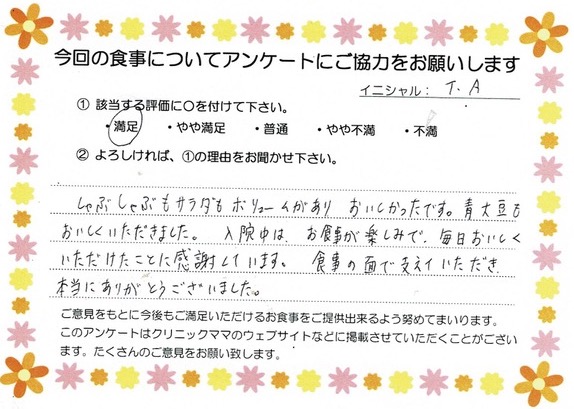 今回の食事についてアンケートにご協力をお願いします
イニシャル： T. A
① 該当する評価に○を付けて下さい。
・満足 ・やや満足 ・普通 ・やや不満 ・不満
② よろしければ、①の理由をお聞かせ下さい。
しゃぶしゃぶもサラダもボリュームがあり おいしかったです。青大豆も
おいしくいただきました。 入院中は、お食事が楽しみで、毎日おいしく
いただけたことに感謝しています。 食事の面で支えていただき、
本当にありがとうございました。
ご意見をもとに今後もご満足いただけるお食事をご提供出来るよう努めてまいります。
このアンケートはクリニックママのウェブサイトなどに掲載させていただくことがござい
ます。たくさんのご意見をお願い致します。